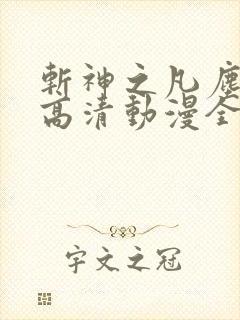 斬神之凡塵
高清動漫全
宇文之冠